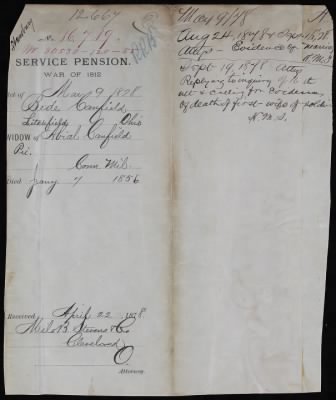 12.667
No. 16,719
SERVICE PENSION.
WAR OF 1812
May 9, 1878
Canfield
Litchfield, Ohio
WIDOW of Abial Canfield
Pri.
Conn Mil.
Died Jany 7 1856
Received April 22, 1878.
Milo B. Stevens & Co
Cleveland
O.
Attorney.
May 9/78
Aug 24, 1878 & Sept 1878
Atty - Evidence of marriage
Sept 19, 1878 Atty
Replying to inquiry of
& calling for evidence
of death of first wife of sold
N.M.S.